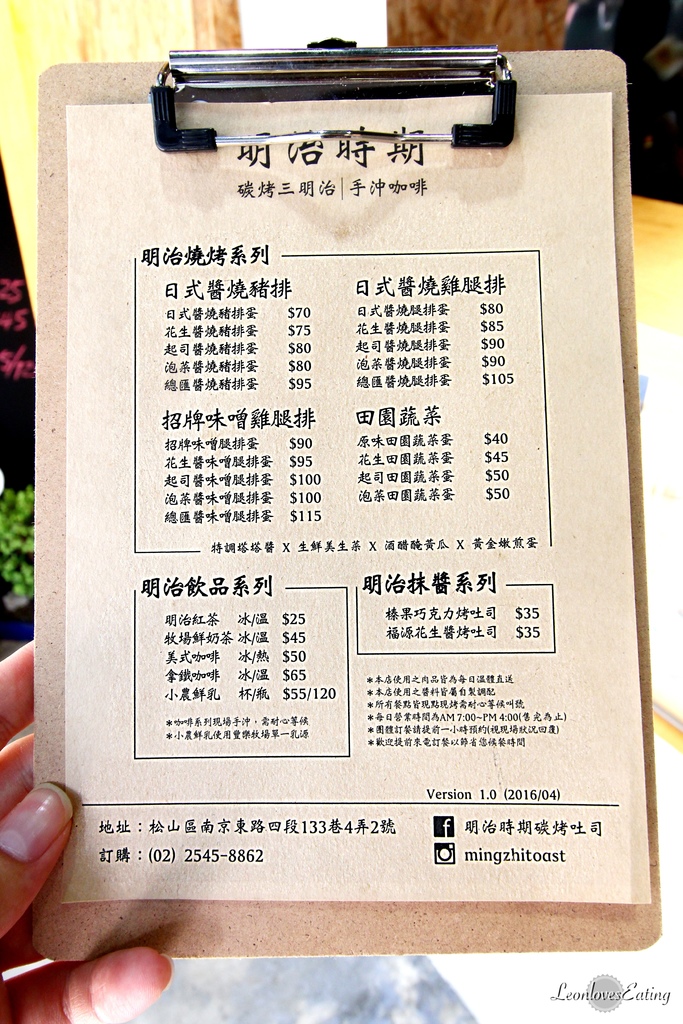 明治時期
碳烤三明治|手沖咖啡
明治燒烤系列
日式醬燒豬排
日式醬燒豬排蛋 $70
花生醬燒豬排蛋 $75
起司醬燒豬排蛋 $80
泡菜醬燒豬排蛋 $80
總匯醬燒豬排蛋 $95
日式醬燒雞腿排
日式醬燒腿排蛋 $80
花生醬燒腿排蛋 $85
起司醬燒腿排蛋 $90
泡菜醬燒腿排蛋 $90
總匯醬燒腿排蛋 $105
招牌味噌雞腿排
招牌味噌腿排蛋 $90
花生醬味噌腿排蛋 $95
起司醬味噌腿排蛋 $100
泡菜醬味噌腿排蛋 $100
總匯醬味噌腿排蛋 $115
田園蔬菜
原味田園蔬菜蛋 $40
花生田園蔬菜蛋 $45
起司田園蔬菜蛋 $50
泡菜田園蔬菜蛋 $50
特調塔塔醬 X 生鮮美生菜 X 酒醋醃黃瓜 X 黃金嫩煎蛋
明治飲品系列
明治紅茶 冰/溫 $25
牧場鮮奶茶 冰/溫 $45
美式咖啡 冰/熱 $50
拿鐵咖啡 冰/溫 $65
小農鮮乳 杯/瓶 $55/120
*咖啡系列現場手沖，需耐心等候
*小農鮮乳使用豐樂牧場單一乳源
明治抹醬系列
榛果巧克力烤吐司 $35
福源花生醬烤吐司 $35
*本店使用之肉品皆為每日溫體直送
*本店使用之醬料皆屬自製調配
*所有餐點皆現點現烤需耐心等候叫號
*每日營業時間為AM 7:00~PM 4:00(售完為止)
*團體訂餐請提前一小時預約(視現場狀況回覆)
*歡迎提前來電訂餐以節省您候餐時間
Version 1.0 (2016/04)
地址：松山區南京東路四段133巷4弄2號
訂購：(02) 2545-8862
明治時期碳烤吐司
mingzhitoast
LeonlovesEating